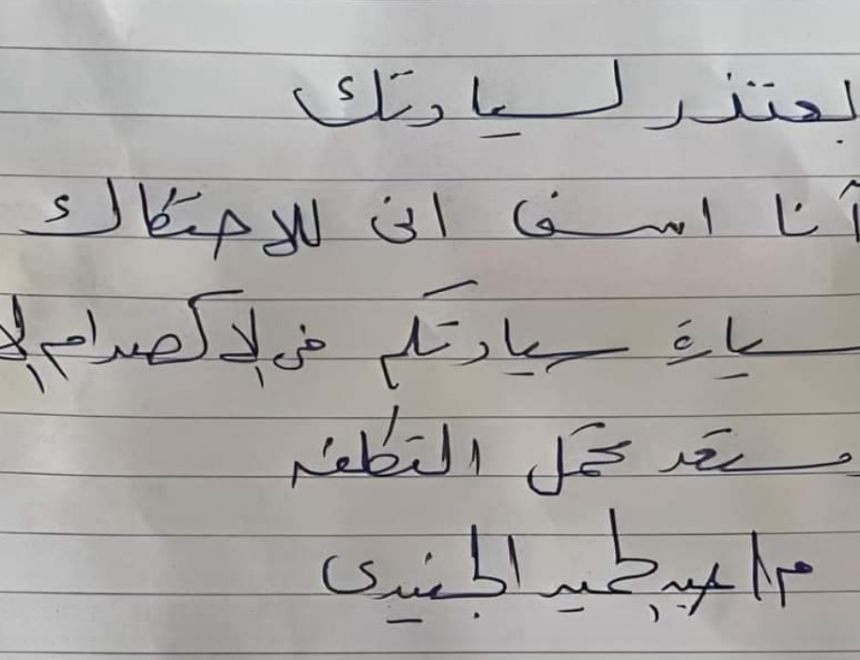 بعتذر لسيادتك
أنا اسف انى للاحتكاك
سيارة سيادتكم فى الاكصدام إلا
مستعد تحمل التكلفه
م/ عبدالحميد الجنيدى